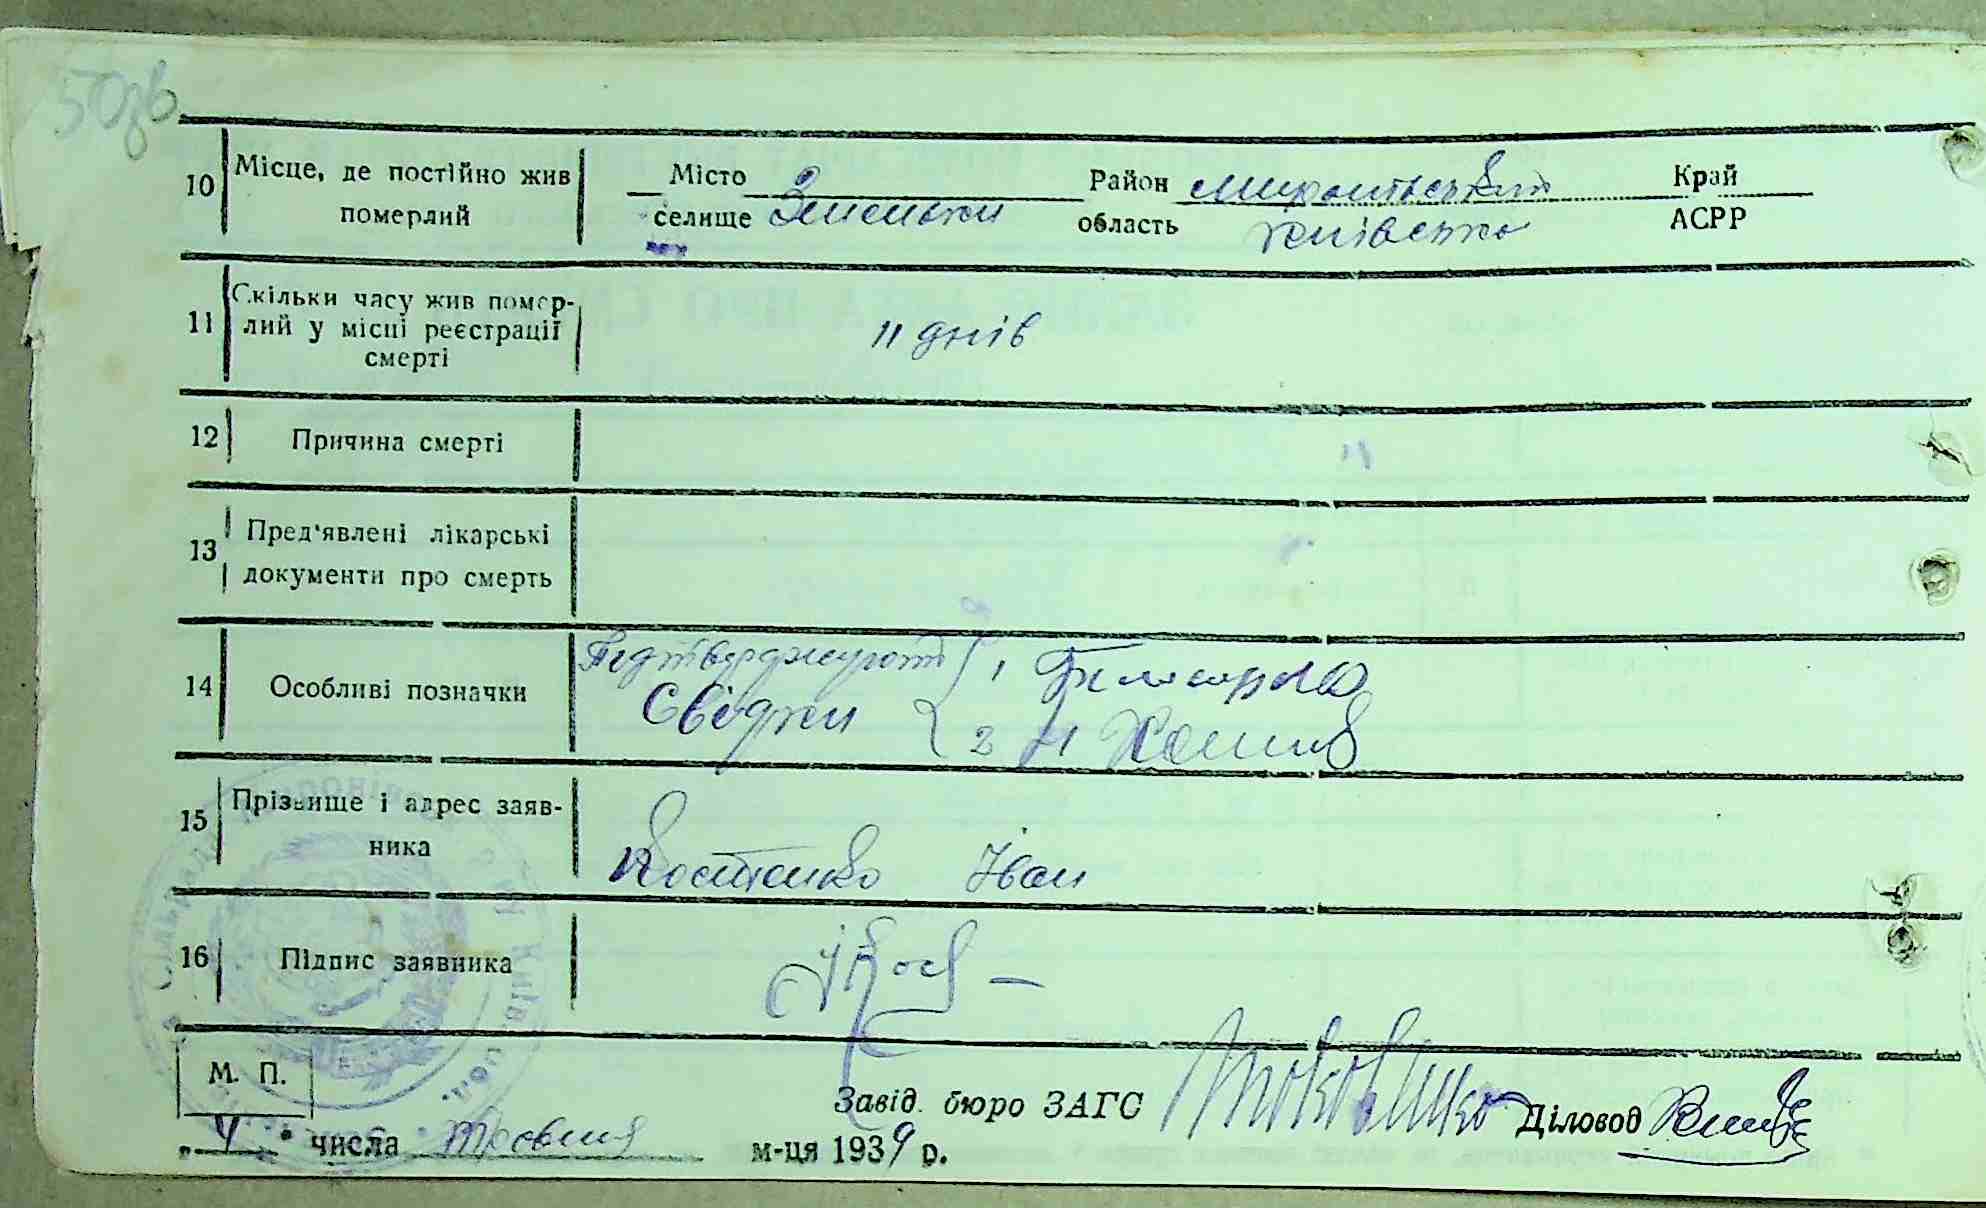 50зв
10 Місце, де постійно жив померлий
Місто Район Миронівський Край
селище область Київська АСРР
11 Скільки часу жив помер-
лий у місці реєстрації
смерті
11 днів
12 Причина смерті
13 Пред'явлені лікарські
документи про смерть
14 Особливі позначки
Підтверджують 1
Свідки 2
15 Прізвище і адрес заяв-
ника
Костенко Іван
16 Підпис заявника
І Кос
М. П.
Завід. бюро ЗАГС Діловод
„ 4 " числа травня м-ця 1939 р.